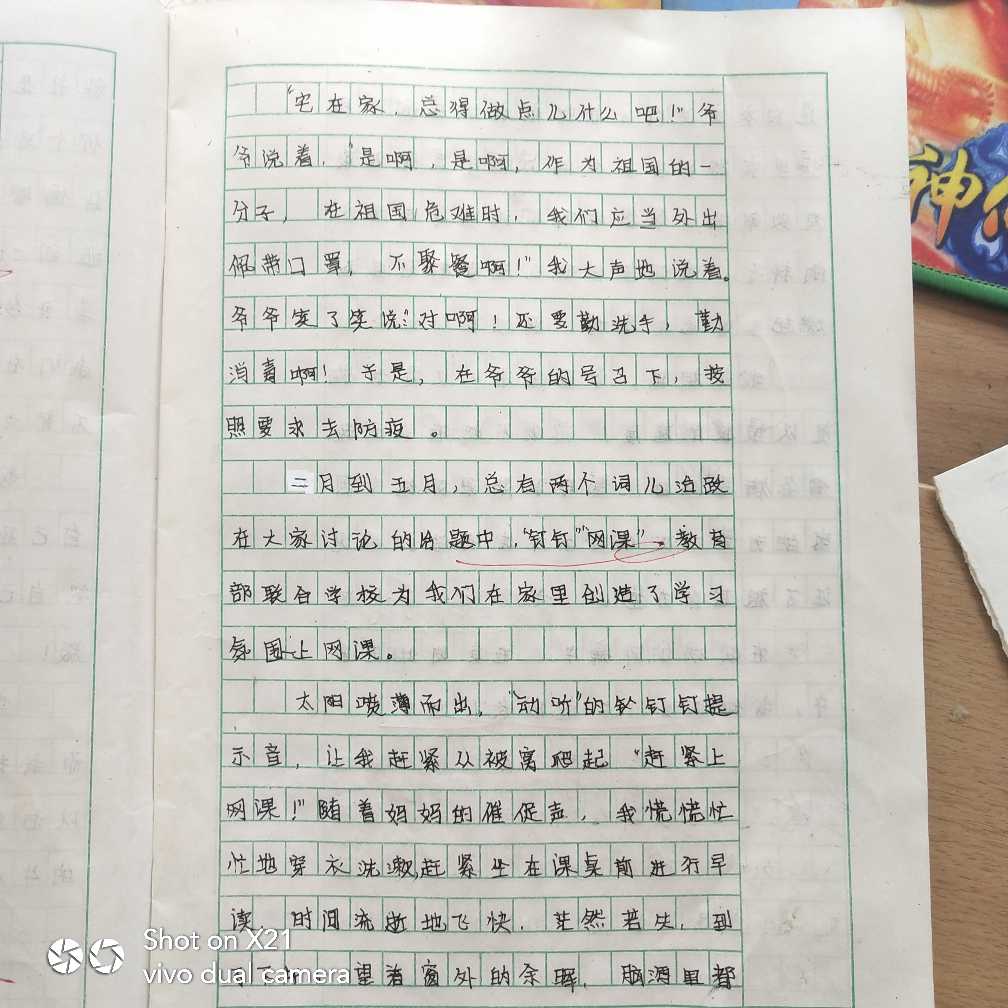 "宅在家，总得做点儿什么吧！"爷
爷说着，"是啊，是啊，作为祖国的一
分子，在祖国危难时，我们应当外出
佩带口罩，不聚餐啊！"我大声地说着。
爷爷笑了笑说："对啊！还要勤洗手，勤
消毒啊！于是，在爷爷的号召下，按
照要求去防疫。
二月到五月，总有两个词儿活跃
在大家讨论的话题中，"钉钉""网课"。教育
部联合学校为我们在家里创造了学习
氛围上网课。
太阳喷薄而出，"动听"的铃钉钉提
示音，让我赶紧从被窝爬起"赶紧上
网课！"随着妈妈的催促声，我慌慌忙
忙地穿衣洗漱,赶紧坐在课桌前进行早
读，时间流逝地飞快，茫然若失，到
望着窗外的余晖，脑海里都
神
Shot on X21
vivo dual camera